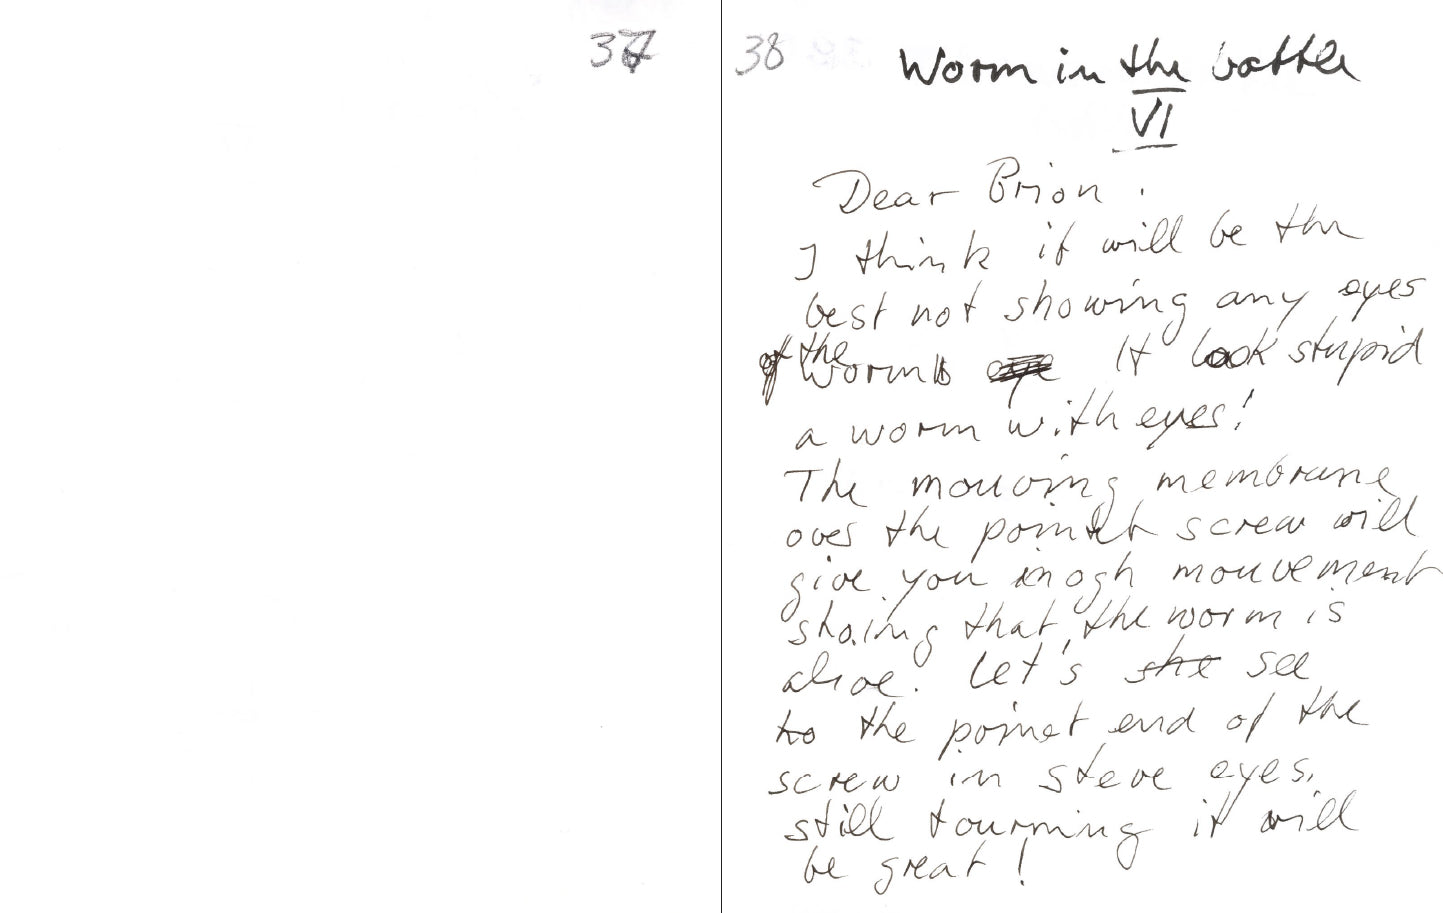 37
38
Worm in the bottle
VI
Dear Brion.
I think it will be the
best not showing any eyes
of the worm It look stupid
a worm with eyes!
The mouving membrane
over the pointet screw will
give you inogh mouvement
shoing that the worm is
alive. Let's she see
to the poinet end of the
screw in steve eyes.
still tourning it will
be great!